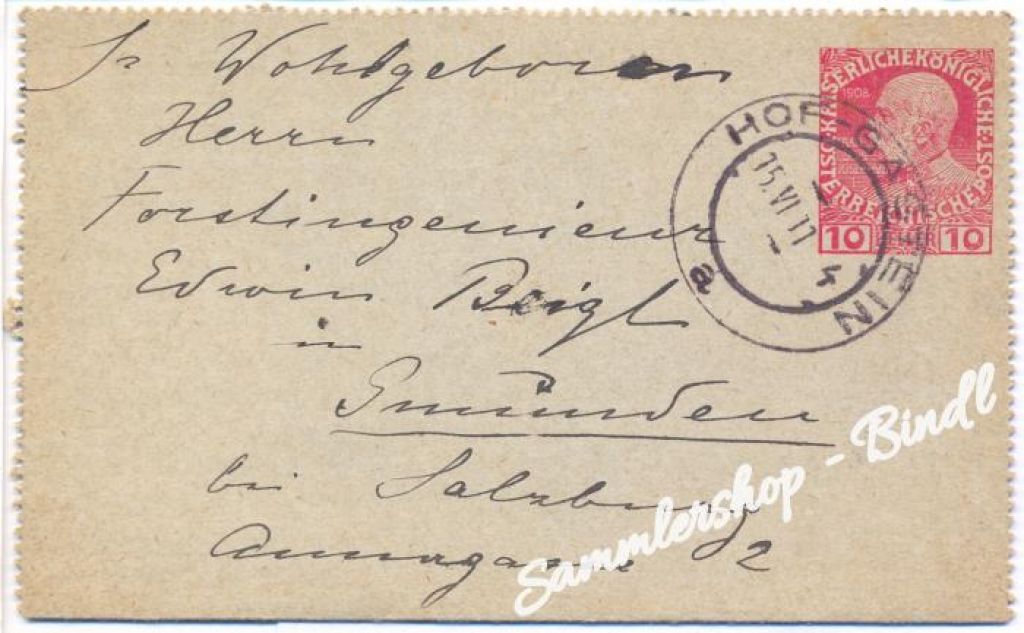 Sr Wohlgeboren
Herrn
Forstingenieur
Edwin Beigl
in
Gmünden
bei Salzburg
Annagasse 2
ÖSTERREICHISCHE POST · KAISERLICHEKÖNIGLICHE
1908
10 HELLER 10
HOF-GASTEIN
15.VI.11
a
Sammlershop - Bindl